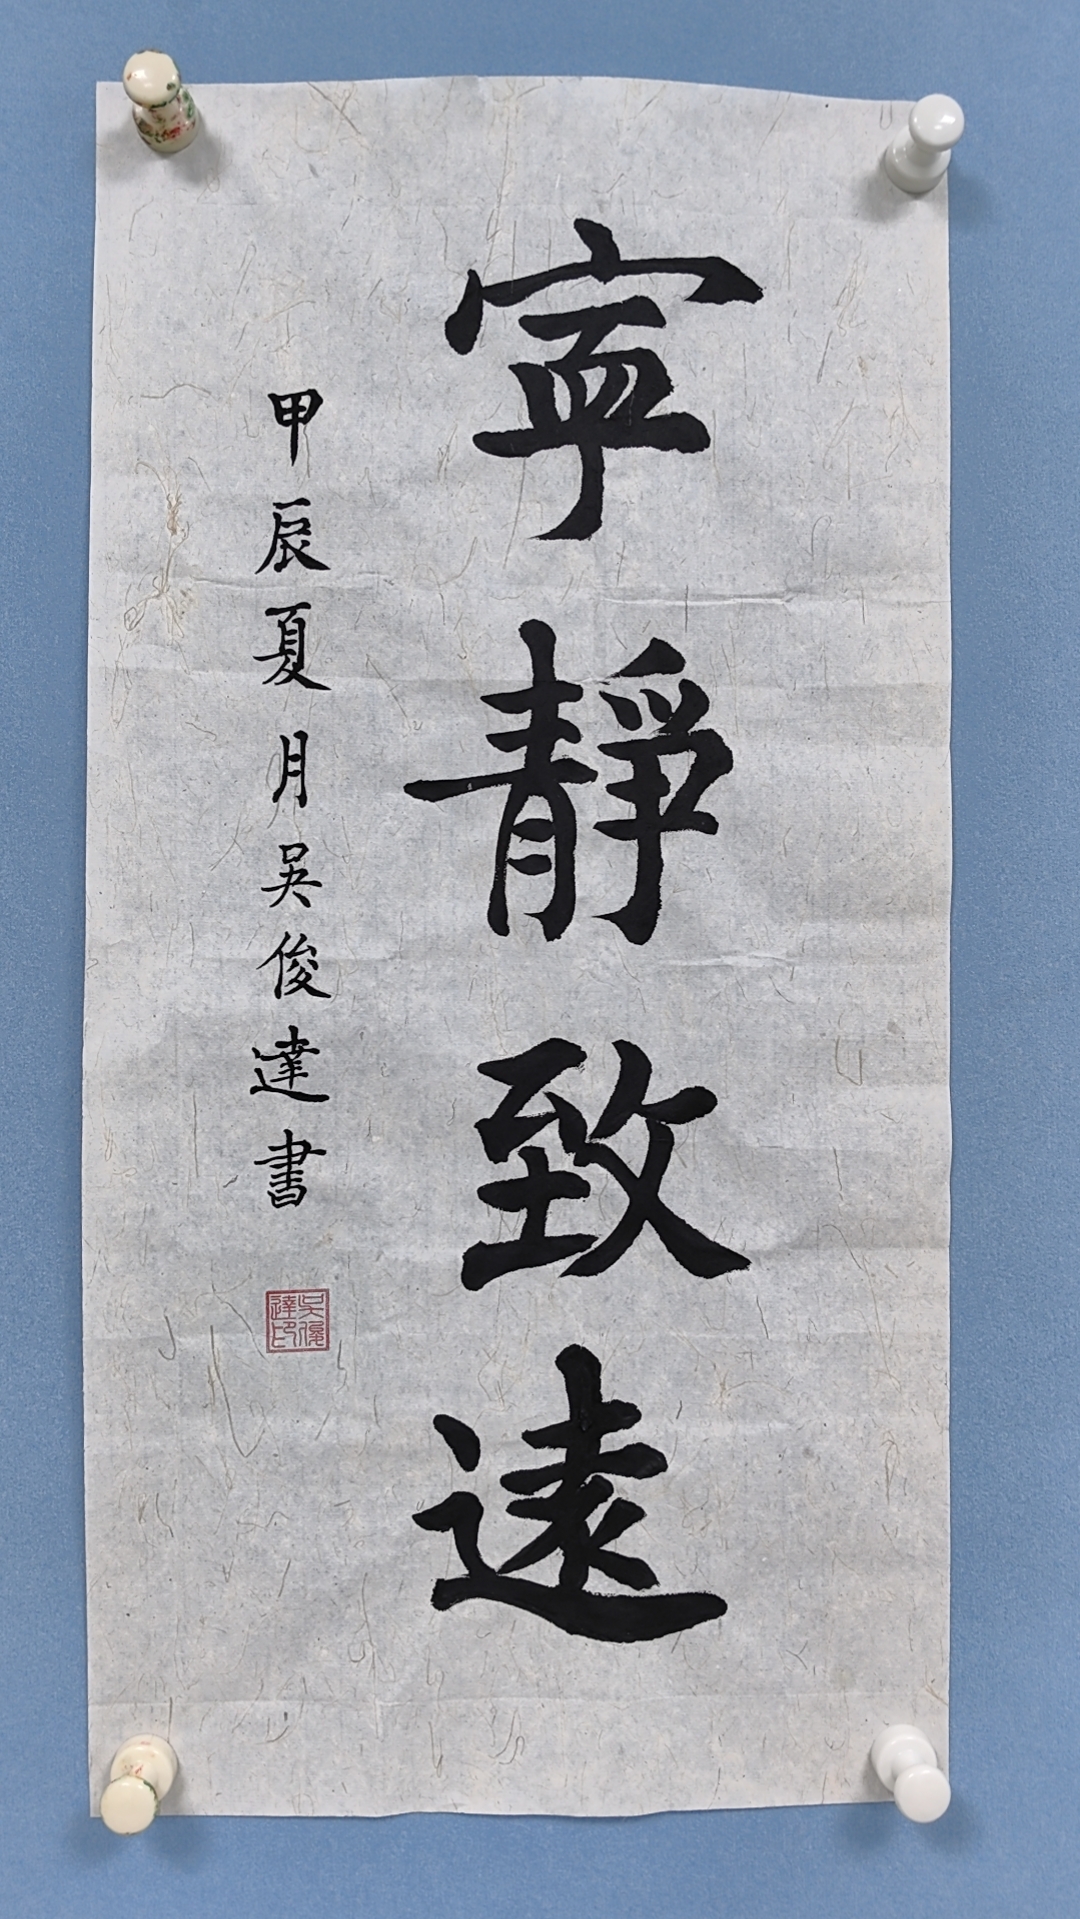 寧靜致遠
甲辰夏月吳俊達書
吳俊達印